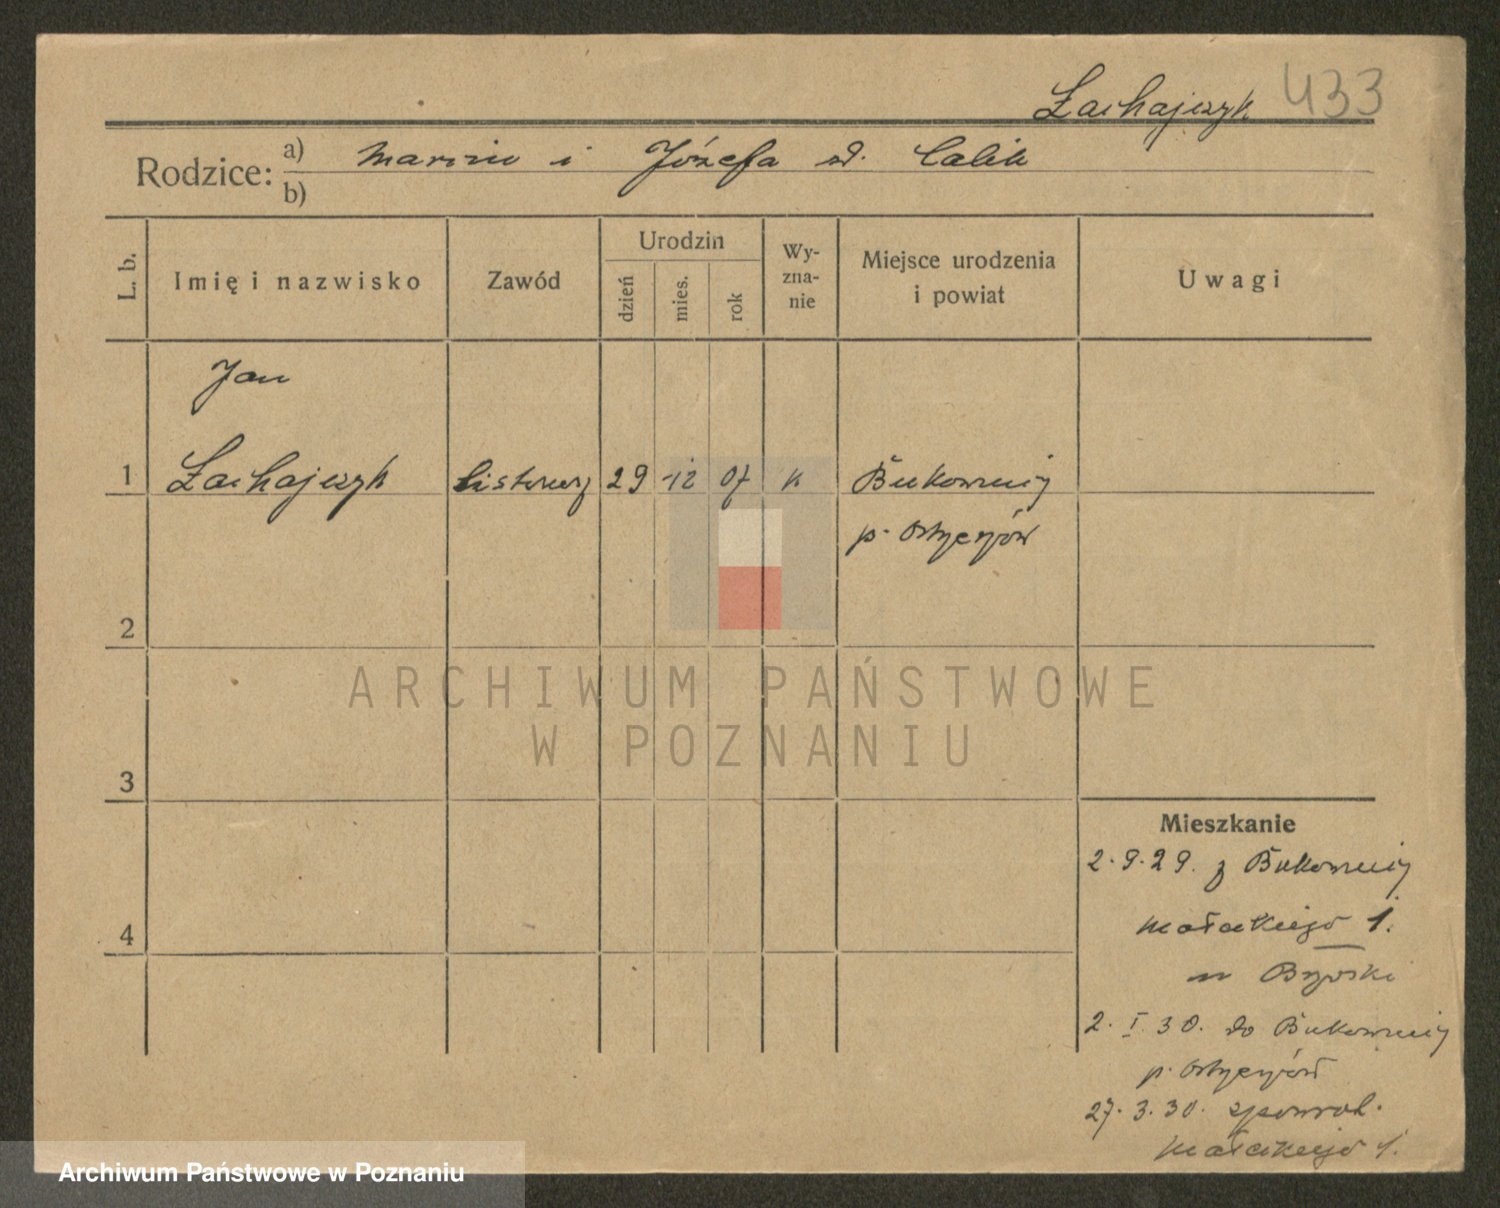 Łachajczyk 433
Rodzice: a) Marcin i Józefa zd. Calik
b)
L. b.
Imię i nazwisko
Zawód
Urodzin
dzień
mies.
rok
Wy-
zna-
nie
Miejsce urodzenia
i powiat
Uwagi
Jan
1 Łachajczyk 29 12 07 k Bukownicy
p.
2
3
4
ARCHIWUM PAŃSTWOWE
W POZNANIU
Mieszkanie
2.9.29. z Bukownicy
Małeckiego 1.
2. I. 30. do Bukownicy
p.
27.3.30.
Małeckiego 1.
Archiwum Państwowe w Poznaniu